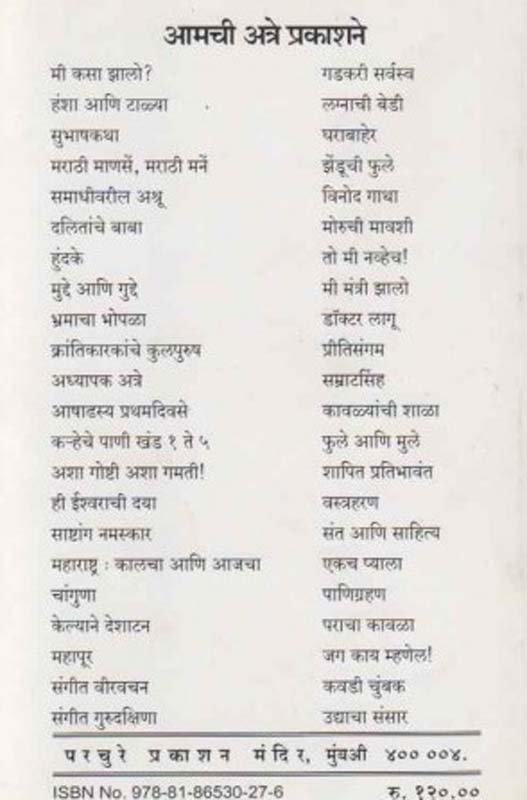 आमची अत्रे प्रकाशने
मी कसा झालो?
हंशा आणि टाळ्या
सुभाषकथा
मराठी माणसें, मराठी मनें
समाधीवरील अश्रू
दलितांचे बाबा
हुंदके
मुद्दे आणि गुद्दे
भ्रमाचा भोपळा
क्रांतिकारकांचे कुलपुरुष
अध्यापक अत्रे
आषाढस्य प्रथमदिवसे
कऱ्हेचे पाणी खंड १ ते ५
अशा गोष्टी अशा गमती!
ही ईश्वराची दया
साष्टांग नमस्कार
महाराष्ट्र : कालचा आणि आजचा
चांगुणा
केल्याने देशाटन
महापूर
संगीत वीरवचन
संगीत गुरुदक्षिणा
गडकरी सर्वस्व
लग्नाची बेडी
घराबाहेर
झेंडूची फुले
विनोद गाथा
मोरुची मावशी
तो मी नव्हेच!
मी मंत्री झालो
डॉक्टर लागू
प्रीतिसंगम
सम्राटसिंह
कावळ्यांची शाळा
फुले आणि मुले
शापित प्रतिभावंत
वस्त्रहरण
संत आणि साहित्य
एकच प्याला
पाणिग्रहण
पराचा कावळा
जग काय म्हणेल!
कवडी चुंबक
उद्याचा संसार
परचुरे प्रकाशन मंदिर, मुंबअी ४०० ००४.
ISBN No. 978-81-86530-27-6 रु. १२०.००